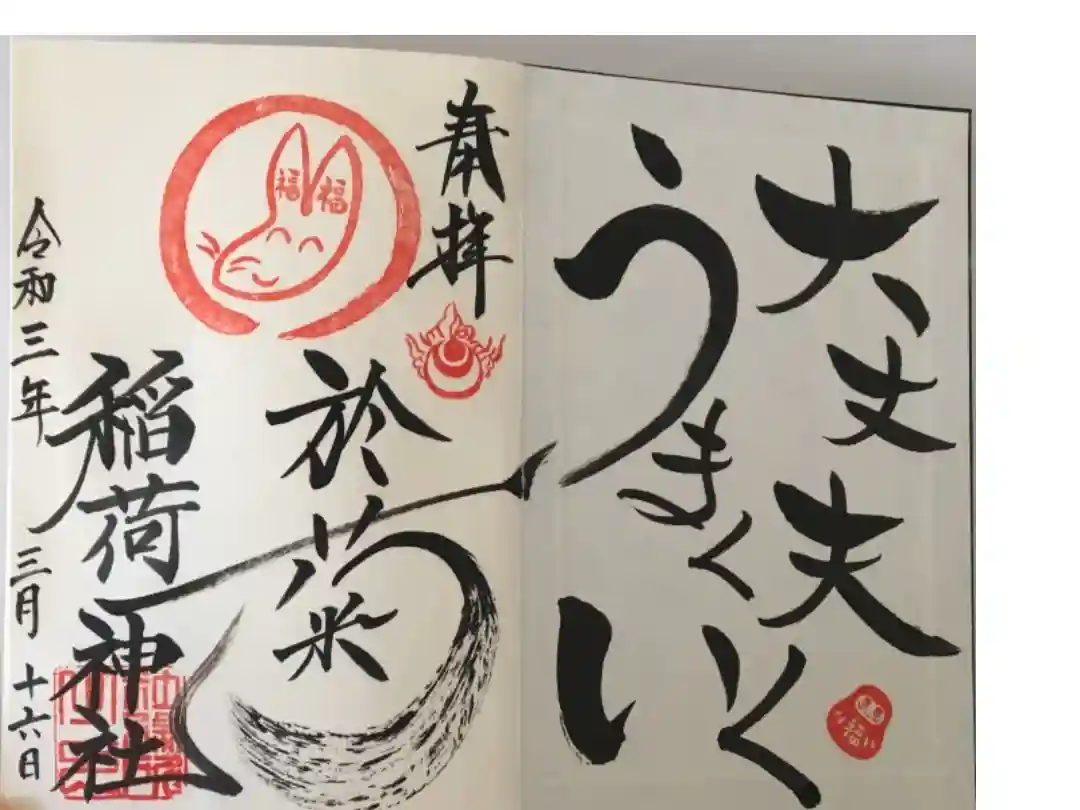 大丈夫
うまくいく
福
奉拝
福福
於菊
稲荷神社
令和三年三月十六日